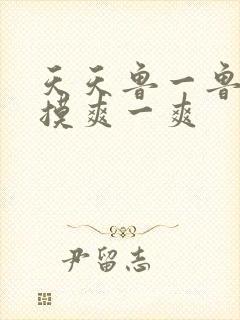 天天鲁一鲁
摸爽一爽
尹留志